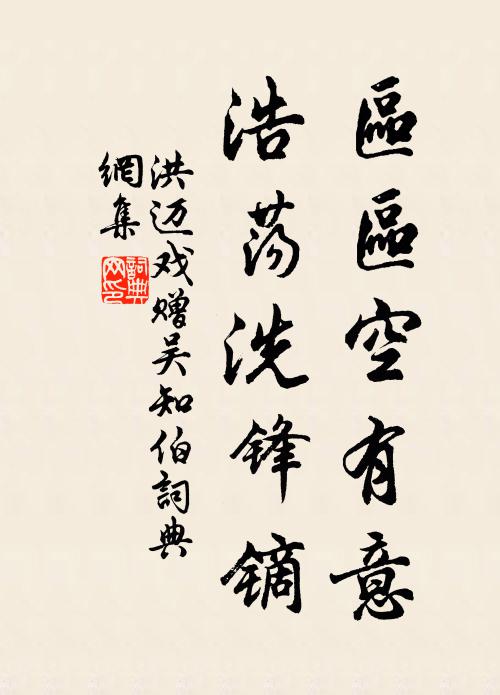 區區空有意
浩荡洗锋镝
洪迈戏赠吴知伯詞典
網集
詞典網印